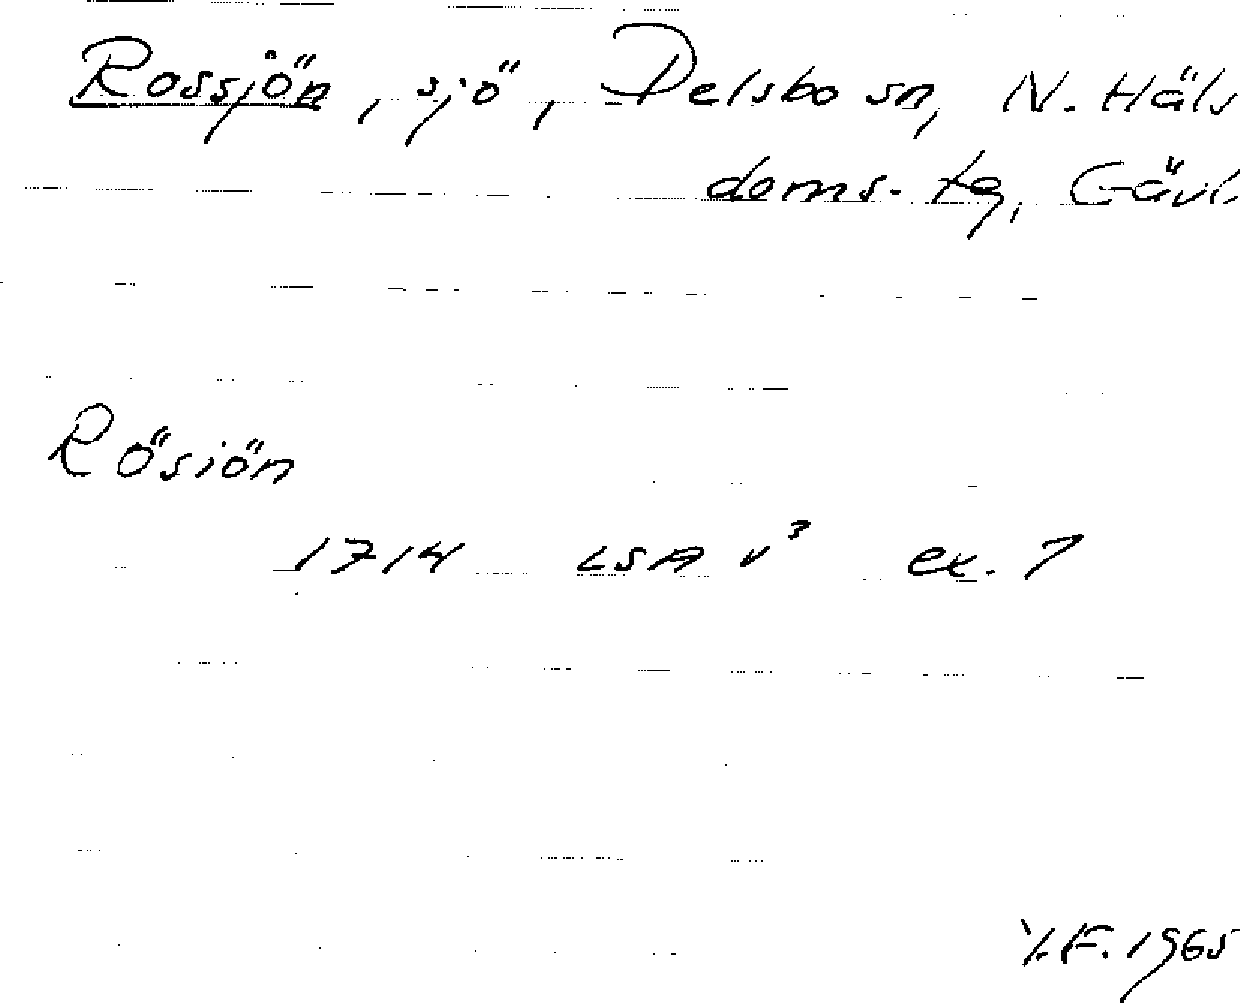 Rossjön, sjö, Delsbo sn, N. Häls
doms. tg, Gävl.
Rösiön
1714 LSA v³ ex. 7
Y.F. 1965